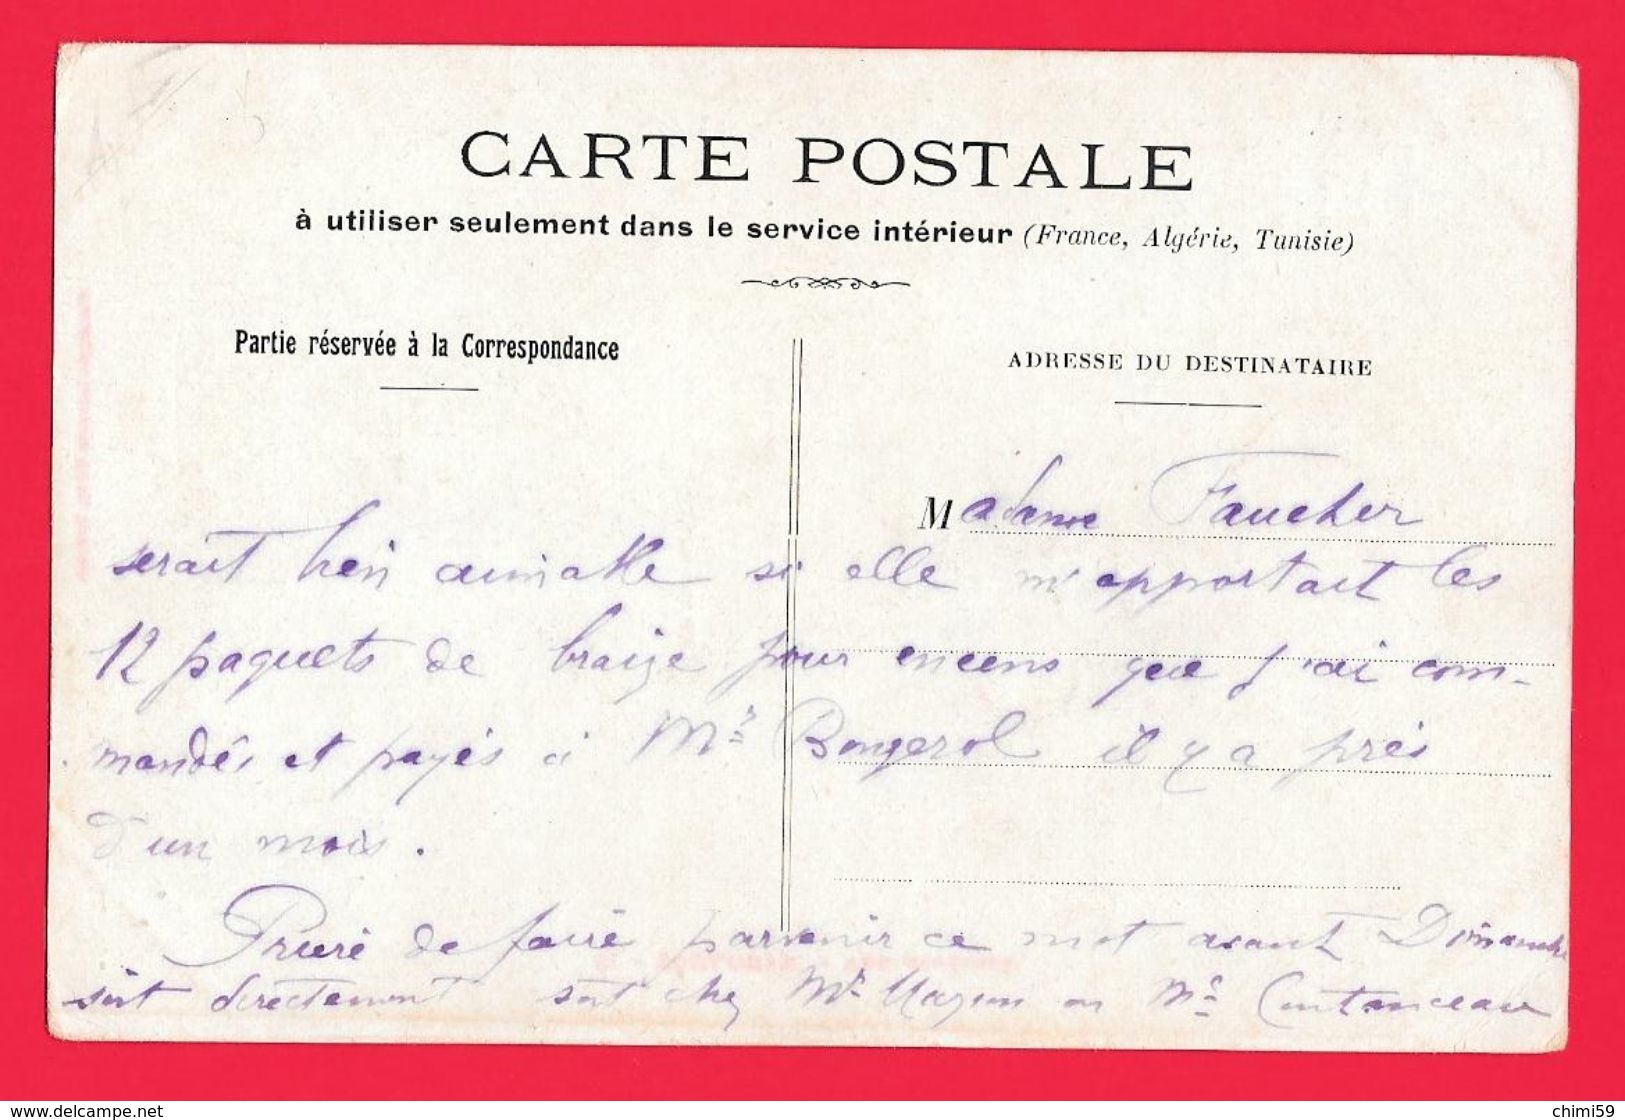 CARTE POSTALE
à utiliser seulement dans le service intérieur (France, Algérie, Tunisie)
Partie réservée à la Correspondance
ADRESSE DU DESTINATAIRE
Madame Faucher
serait bien aimable si elle m'apportait les
12 paquets de braize pour encens que j'ai com-
mandés et payés à Mr Bongerol il y a près
d'un mois.
Prière de faire parvenir ce mot avant Dimanche
soit directement soit chez Mr ou Me Coutanceau
www.delcampe.net
chimi59